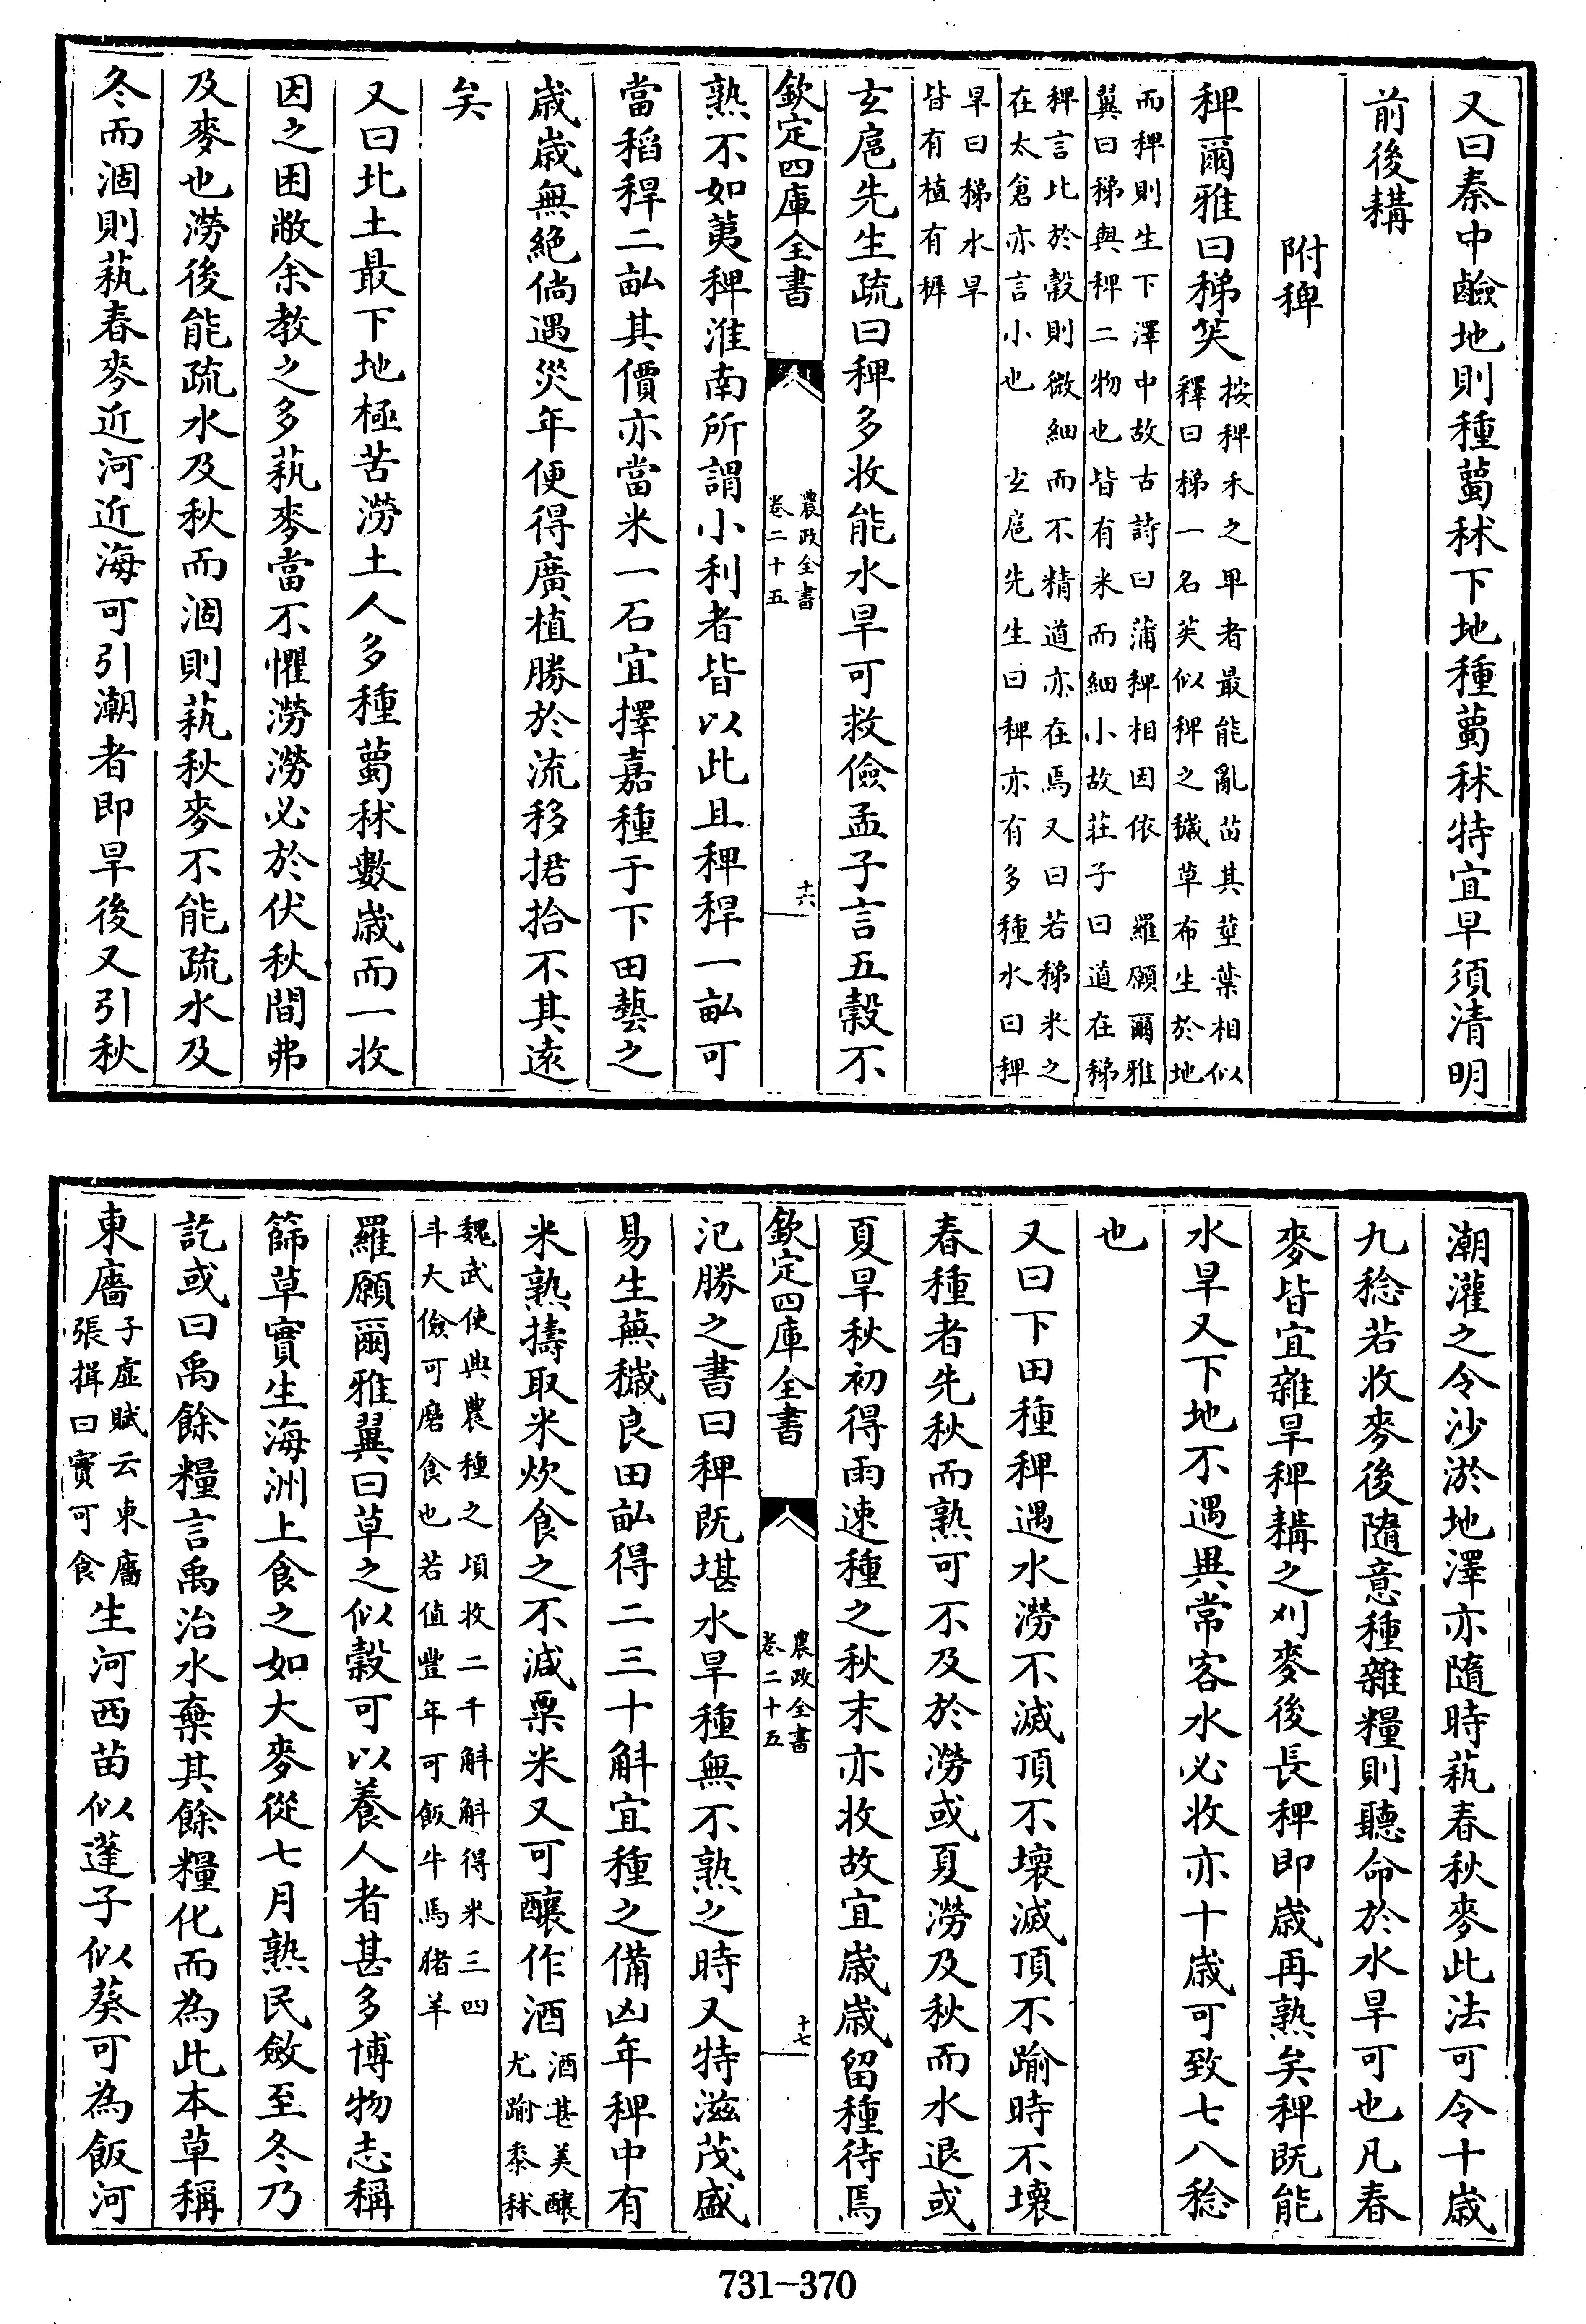 又曰秦中鹼地則種蜀秫下地種蜀秫特宜早須清明
前後耩
附稗
稗爾雅曰稊苵
按稗禾之卑者最能亂苗其莖葉相似
釋曰稊一名苵似稗之穢草布生於地
而稗則生下澤中故古詩曰蒲稗相因依 羅願爾雅
翼曰稊與稗二物也皆有米而細小故莊子曰道在稊
稗言比於穀則微細而不精道亦在焉又曰若稊米之
在太倉亦言小也 玄扈先生曰稗亦有多種水曰稗
旱曰稊水旱
皆有植有穉
玄扈先生疏曰稗多收能水旱可救儉孟子言五穀不
欽定四庫全書
農政全書
卷二十五
十六
熟不如荑稗淮南所謂小利者皆以此且稗稈一畝可
當稻稈二畝其價亦當米一石宜擇嘉種于下田藝之
歲歲無絕倘遇災年便得廣植勝於流移捃拾不其遠
矣
又曰北土最下地極苦澇土人多種蜀秫數歲而一收
因之困敝余教之多蓺麥當不懼澇澇必於伏秋間弗
及麥也澇後能疏水及秋而涸則蓺秋麥不能疏水及
冬而涸則蓺春麥近河近海可引潮者即旱後又引秋
潮灌之令沙淤地澤亦隨時蓺春秋麥此法可令十歲
九稔若收麥後隨意種雜糧則聽命於水旱可也凡春
麥皆宜雜旱稗耩之刈麥後長稗即歲再熟矣稗既能
水旱又下地不遇異常客水必收亦十歲可致七八稔
也
又曰下田種稗遇水澇不滅頂不壞滅頂不踰時不壞
春種者先秋而熟可不及於澇或夏澇及秋而水退或
夏旱秋初得雨速種之秋末亦收故宜歲歲留種待焉
欽定四庫全書
農政全書
卷二十五
十七
氾勝之書曰稗既堪水旱種無不熟之時又特滋茂盛
易生蕪穢良田畝得二三十斛宜種之備凶年稗中有
米熟擣取米炊食之不減粟米又可釀作酒
酒甚美釀
尤踰黍秫
魏武使典農種之頃收二千斛斛得米三四
斗大儉可磨食也若值豐年可飯牛馬豬羊
羅願爾雅翼曰草之似穀可以養人者甚多博物志稱
篩草實生海洲上食之如大麥從七月熟民斂至冬乃
訖或曰禹餘糧言禹治水棄其餘糧化而為此本草稱
東廧
子虛賦云東廧
張揖曰實可食
生河西苗似蓬子似葵可為飯河
731-370